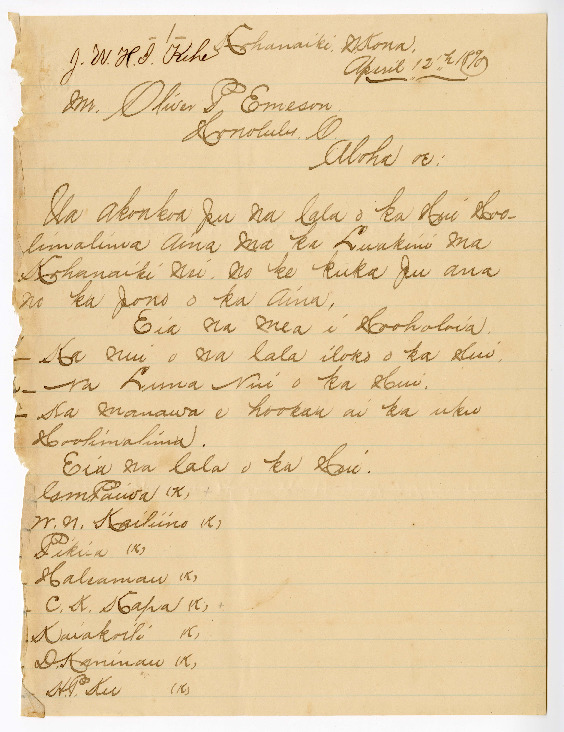 -1-
J. W. H. I. Kihe Kohanaiki, N. Kona,
April 12th, 1890
Mr. Oliver P. Emeson
Honolulu, O.
Aloha oe:
Ua akoakoa pu na lala o ka Hui Hoo-
limalima Aina ma ka Luakini ma
Kohanaiki nei no ke kuka pu ana
no ka pono o ka Aina,
Eia na mea i Hooholoia.
Ka nui o na lala iloko o ka Hui.
Na Luna Nui o ka Hui.
Ka manawa e hookaa ai ka uku
Hoolimalima.
Eia na lala o ka Hui.
Paiwa (K)
W. N. Kailiino (K)
Pikua (K)
Haleamau (K)
C. K. Kapa (K)
Kaiakoili (K)
D. Kaninau (K)
H. P. Ku (K)